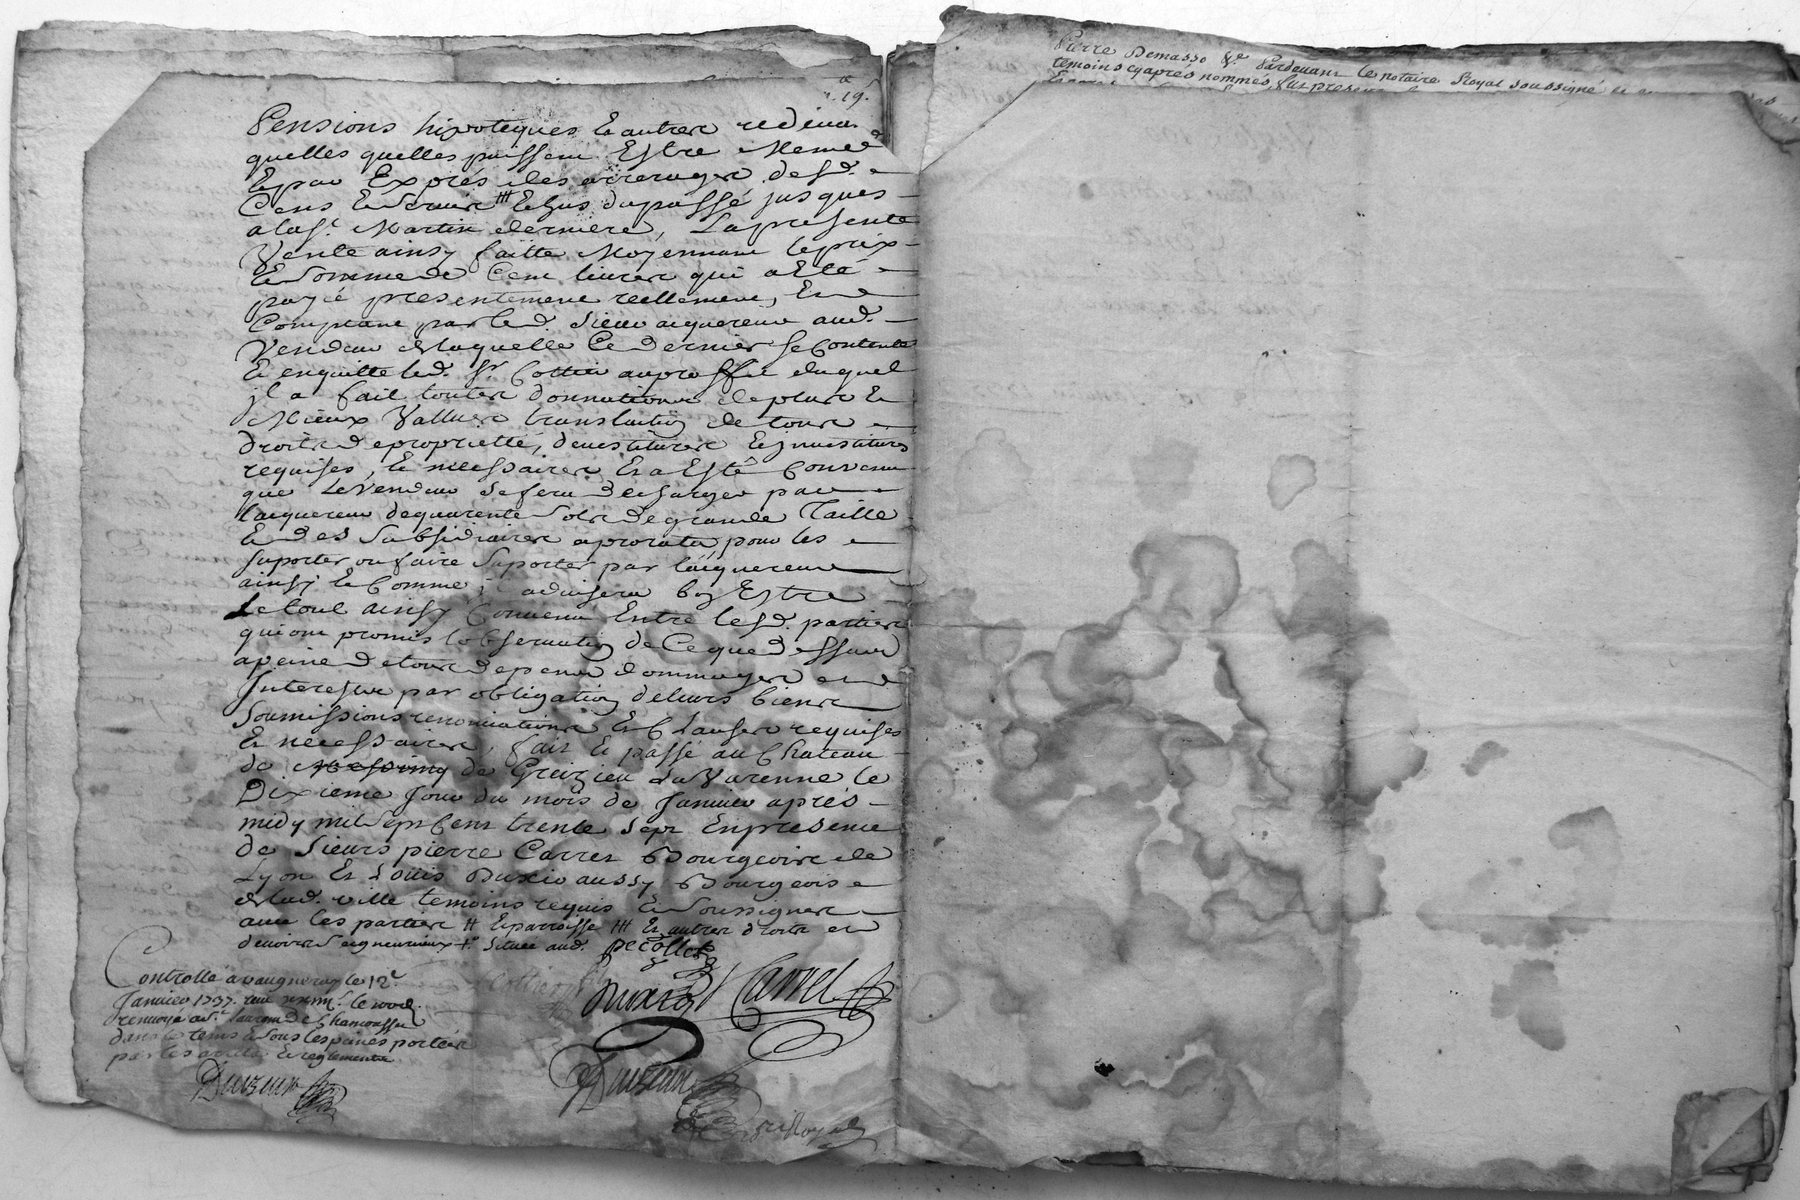 19.
Pensions hipoteques Et autres redeua
quelles quelles puissent Estre Mesme
Et par Exprés des arrerages desd.
Cens Et seruis ### Et Sus du passé jusques
a la st. Martin derniere, La presente
Vente ainsy faitte Moyennant le prix
Et somme de Cent liures qui a Eté
payé presentement reellement, Et
Comptant par led. sieur aiquereur aud.
Vendeur de laquelle Ce dernier Se Contente
Et enquitte led. sr. Cottier au proffit duquel
jl a fait toutes donnations de plus Et
Mieux Vallues translation de tous
droits de proprietté, deuestitures Et jnuestitures
requises, Et necessaires Et a Esté Conuenu
que Le Vendeur se fera decharger par
l'aiquereur de quarente sols de grande Taille
Et des subsidiaires a prorata, pour les
suporter ou faire suporter par l'aiquereur
ainsy Et Comme il aduisera bon Estre
Le tout ainsy Conuenu Entre lesd. parties
qui ont promis l'obseruation de Ce que dessus
a peine de tous depens dommages et
Interests par obligation de leurs biens
Soumissions renonciations Et Clauses requises
Et necessaires, fait Et passé au Chateau
de de Greizieu La Varenne le
Dixieme Jour du mois de Januier aprés
midy mil sept Cent trente sept En presence
de sieurs pierre Carret Bourgeois de
Lyon Et Louis Duxio aussy Bourgeois
de lad. ville temoins requis Et soussignes
auec les parties # Et parroisse ### Et autres droits et
deuoirs seigneuriaux +. située aud. pecollet
Cottier
Controllé a vaugneray le 12e.
Januier 1737. reçu
renuoyé au
dans le tems & sous les peines portées
par les arrets Et reglements
Carret
Pierre Demasso &c. Pardeuant le notaire Royal soussigné et
temoins cyaprés nommés, fut present